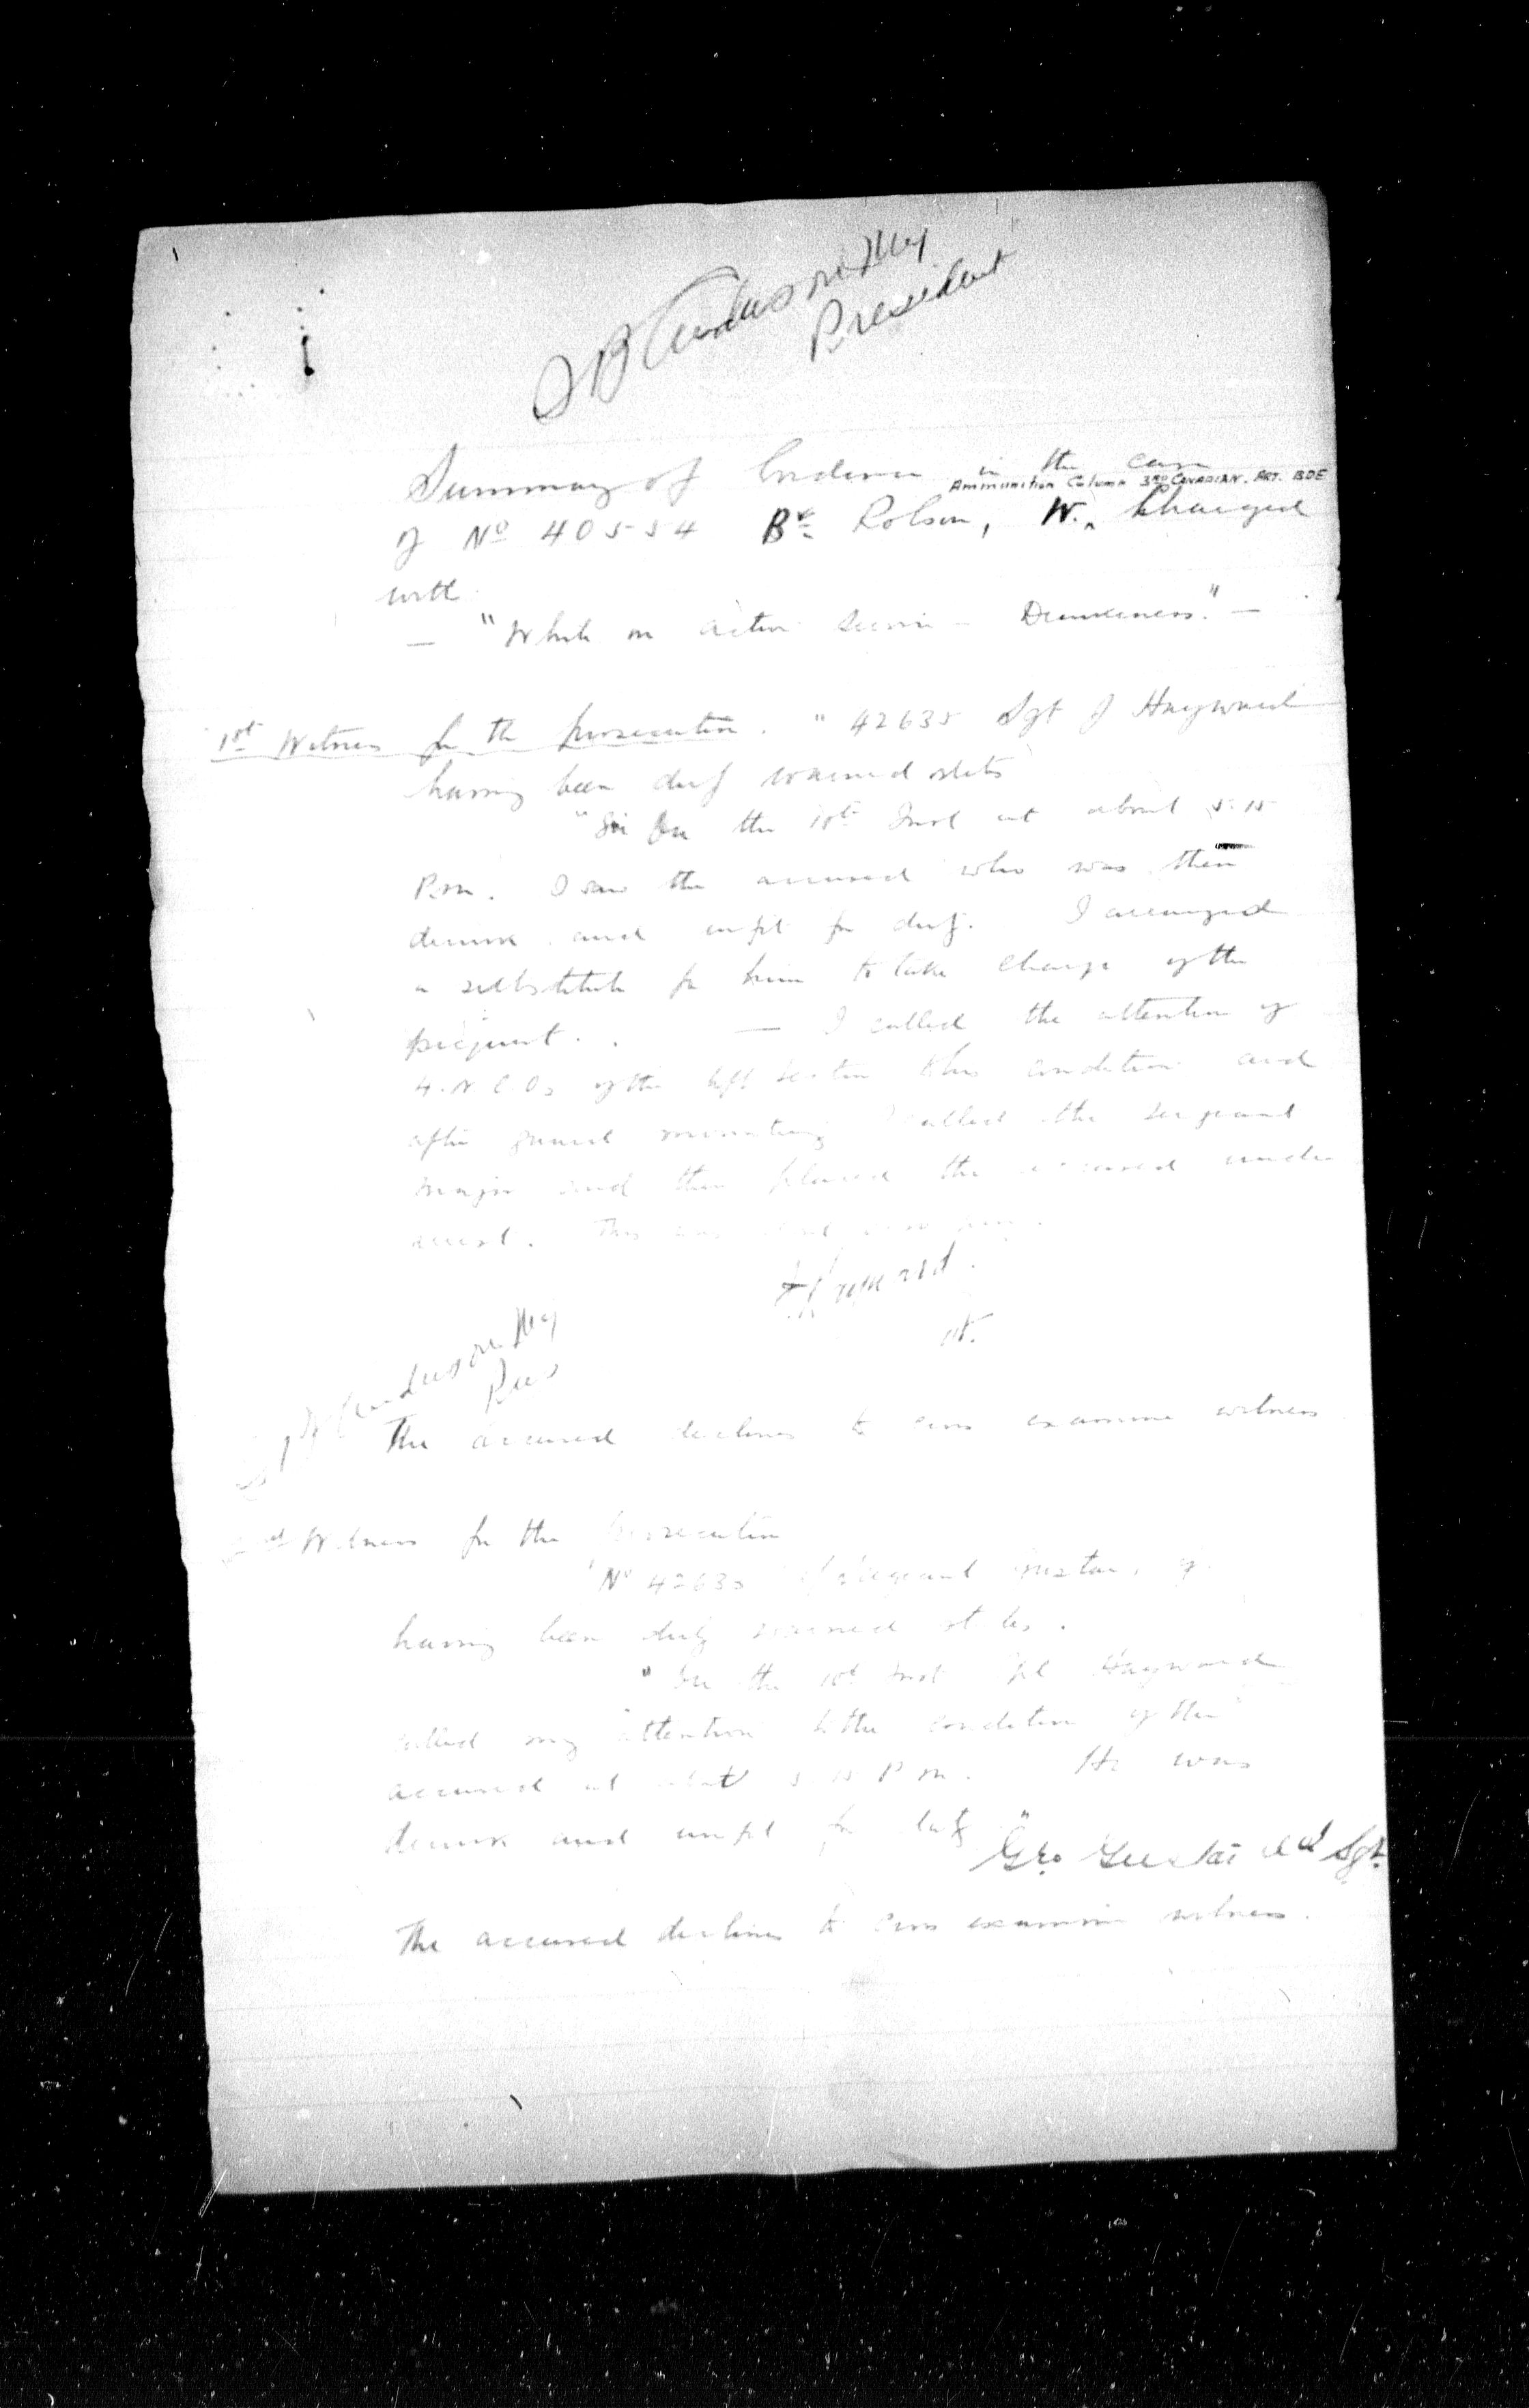 Anderson Maj
President
Summary of Evidence in the case
Ammunition Column 3RD CANADIAN. ART. BDE
of No 40554 Br Rolson, W. Charged
with
— "While on active service — Drunkeness." —
1st Witness for the prosecution. " 42635 Sgt J Hayward
having been duly warned states
"On the 10th Inst at about 5.15
P.m. I saw the accused who was then
drunk and unfit for duty. I arranged
a substitute for him to take charge of the
picquet. — I called the attention of
4. N.C.Os of the left section to his condition and
after guard mounting I called the sergeant
major and then placed the accused under
arrest. This was
Hayward.
Anderson Maj
Pres
The accused declines to cross examine witness
Witness for the prosecution
No 4263
having been duly warned states.
"On the 10th Inst Hayward
called my attention to the condition of the
accused at about 5.15 P.m. He was
drunk and unfit for duty"
Geo Sgt
The accused declines to cross examine witness.